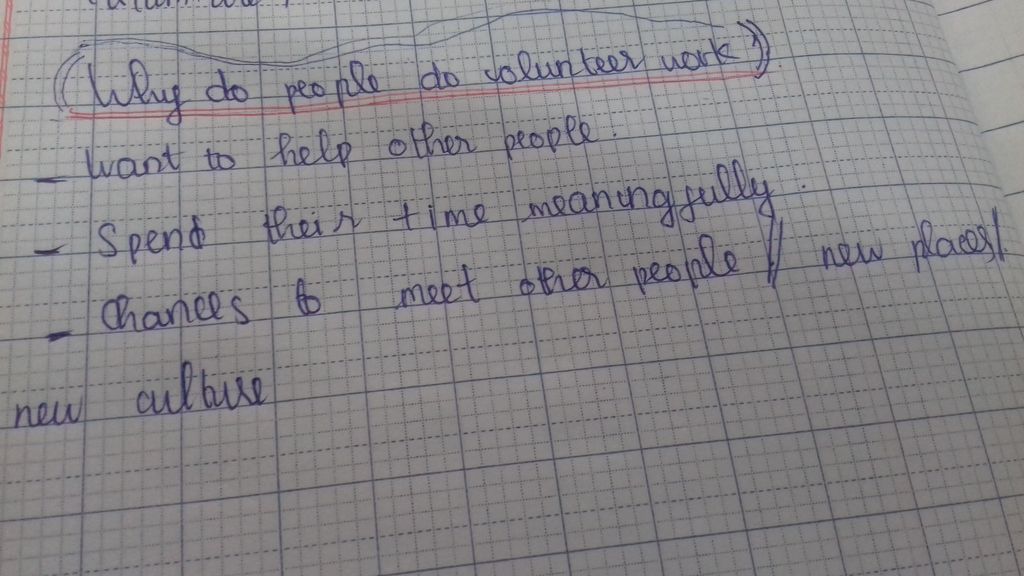 (Why do people do volunteer work?)
- Want to help other people.
- Spend their time meaningfully.
- Chances to meet other people // new places/
new culture